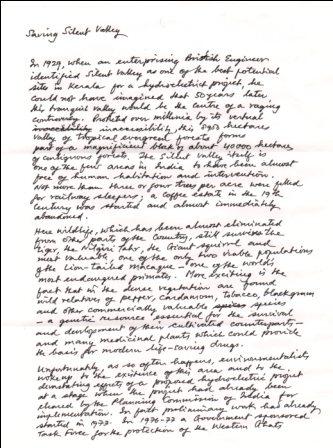 Saving Silent Valley
In 1929, when an enterprising British Engineer
identified Silent Valley as one of the best potential
sites in Kerala for a hydroelectric project, he
could not have imagined that 50 years later
this tranquil valley would be the centre of a raging
controversy. Protected over millenia by its vertical
inaccessibility, this 8952 hectares
valley of tropical evergreen forests forms
part of a magnificent block of about 40000 hectares
of contiguous forests. The Silent Valley itself is
one of the few areas in India to have been almost
free of human habitation and intervention.
Not more than three or four trees per acre were felled
for railway sleepers; a coffee estate in the 19th
Century was started and almost immediately
abandoned.
Here wildlife, which has been almost eliminated
from other parts of the country, still survives the
tiger, the Nilgiri Tahr, the Giant squirrel and
most valuable, one of the only two viable populations
of the Lion-tailed macaque - one of the world's
most endangered primates. More exciting is the
fact that in the dense vegetation are found
wild relatives of pepper, cardamom, tobacco, blackgram
and other commercially valuable species
- a genetic resource essential for the survival
and development of their cultivated counterparts -
and many medicinal plants which could provide
the basis for modern life-saving drugs.
Unfortunately, as so often happens, environmentalists
woke up to the existence of this area and to the
devastating effects of a proposed hydroelectric project
at a stage when the project had already been
cleared by the Planning Commission of India for
implementation. In fact preliminary work had already
started in 1973. In 1976-77 a Government sponsored
Task Force for the protection of the Western Ghats